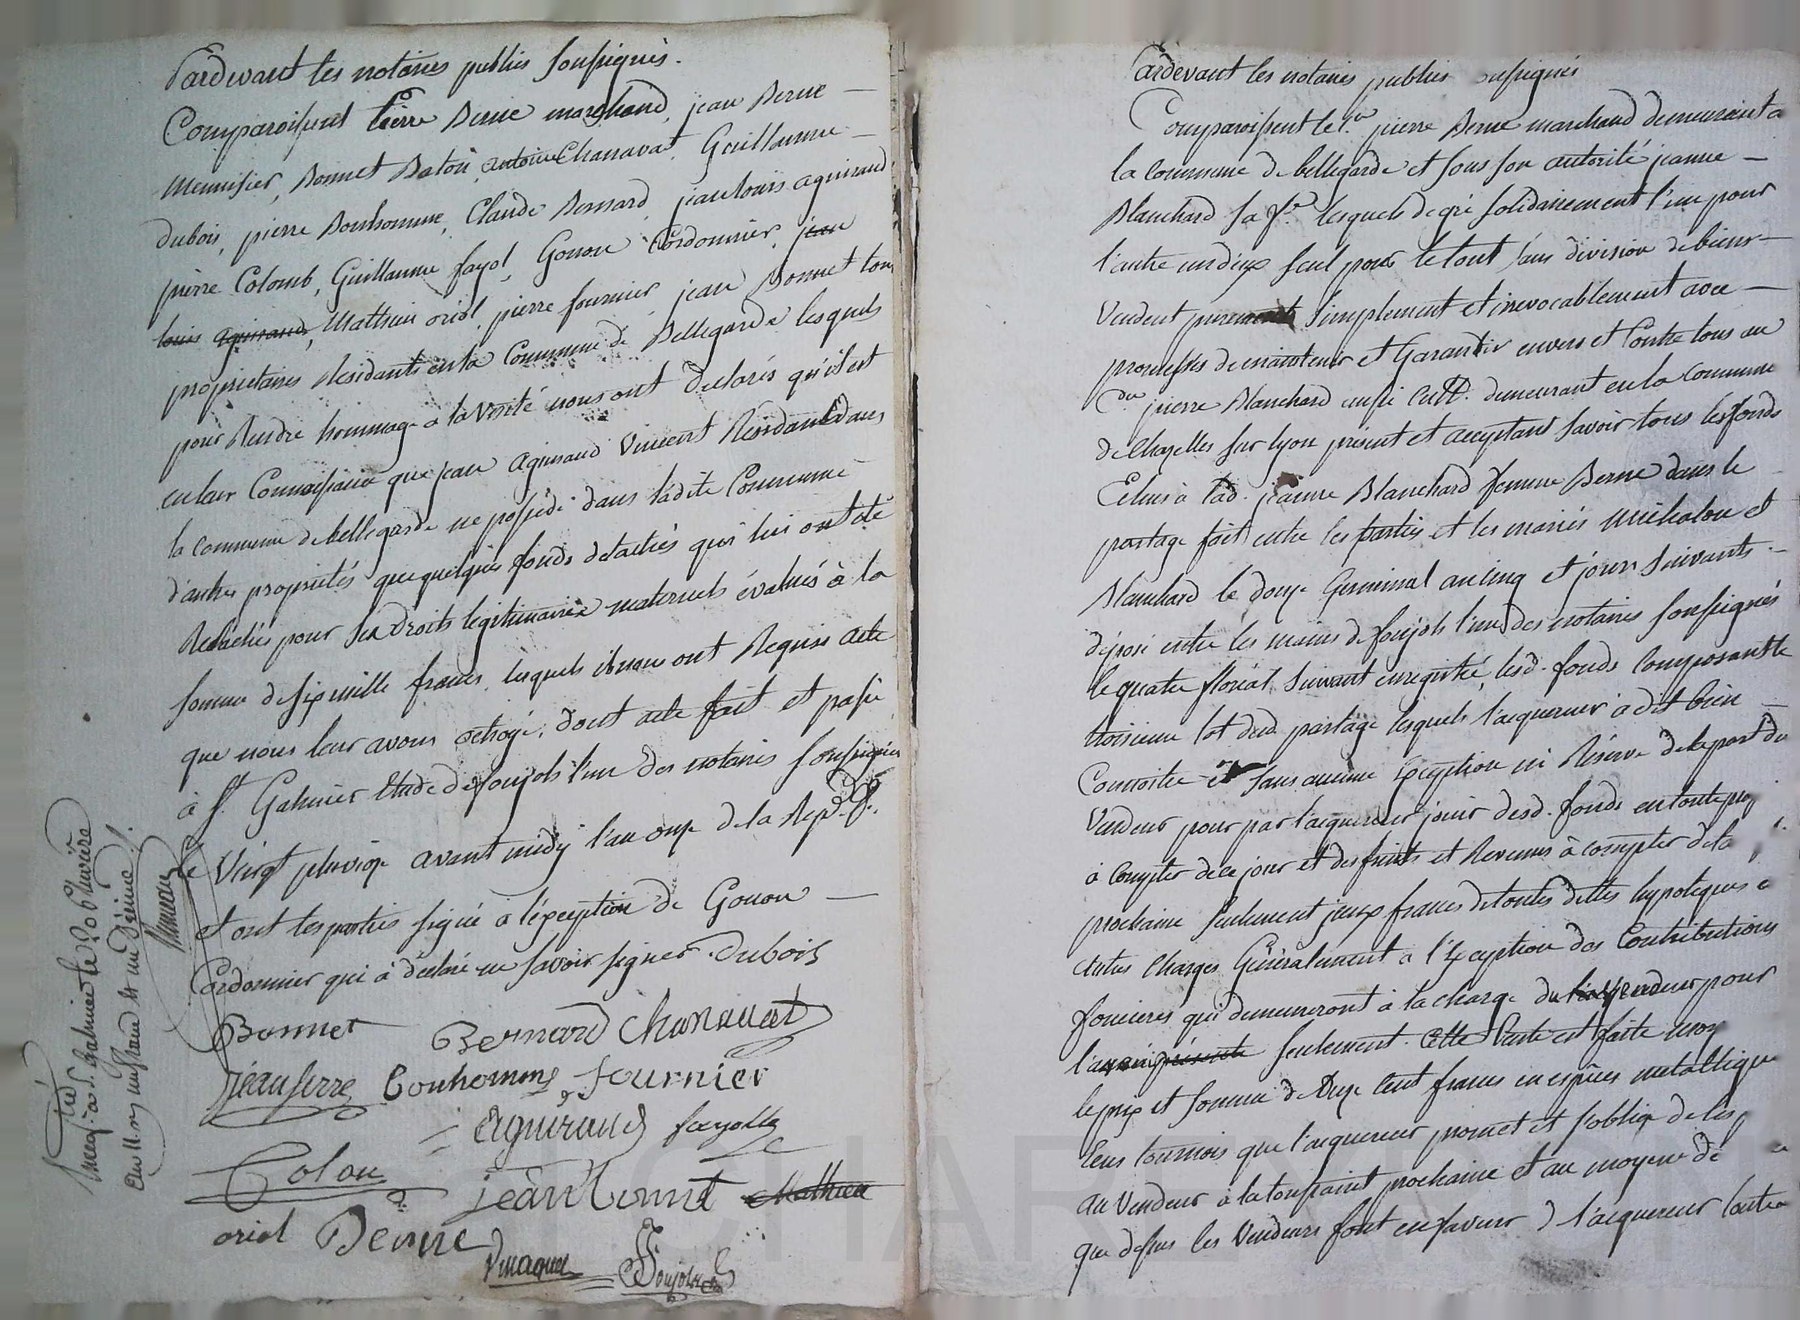 Pardevant les notaires publics soussignés.
Comparoissent Pierre Berne marchand, jean Berne
Menuisier, Bonnet Baton, antoine Chanavat, Guillaume
dubois, pierre Bonhomme, Claude Bernard, jean louis aguiraud
pierre Colomb, Guillaume fayol, Gonon Cordonnier, jean
louis aguiraud, Mathieu oriol, pierre fournier jean Bonnet tous
propriétaires Residants en la Commune de Bellegarde lesquels
pour Rendre hommage a la Vérité nous ont declarés qu'il est
en leur Connoissance que jean aguiraud Vincent Residant dans
la commune de bellegarde ne possède dans ladite Commune
d'autres propriétés que quelques fonds detachés qui lui ont été
Relachés pour ses droits legitimaires maternels évalués à la
somme de six mille francs, lesquels ils nous ont Requis acte
que nous leur avons octroyé, dont acte fait et passé
à St. Galmier Etude de foujols l'un des notaires soussignés
le Vingt pluviose avant midy l'an onze de la Rep. f.
et ont les parties signé à l'éxception de Gonon
Cordonnier qui à déclaré ne savoir signer. Dubois
Bonnet Bernard Chanavat
jean ferre Bonhomme fournier
aguiraud fayolle
Colon jean bonnet Mathieu
oriol Berne
foujols
à St. Galmier le 20 pluviose
an 11 Reçu un franc et un Décime
Pardevant les notaires publics soussignés
Comparoissent le Sr. pierre Berne marchand demeurant a
la Commune de bellegarde et sous son autorité jeanne
Blanchard sa fe. lesquels de gré solidairement l'un pour
l'autre un deux seul pour le tout sans division de biens
Vendent purement simplement et irrevocablement avec
promesses de maintenir et Garantir envers et Contre tous au
Cen. pierre Blanchard aussi Cult. demeurant en la Commune
de Chazelles sur lyon présent et acceptant savoir tous les fonds
Echus à lad. jeanne Blanchard femme Berne dans le
partage fait entre les parties et les mariés Michalon et
Blanchard le douze Germinal an cinq et jours suivants
déposé entre les mains de foujols l'un des notaires soussignés
le quatre floréal suivant enregistré, lesd. fonds Composant le
troisieme lot dud. partage lesquels l'acquereur à dit bien
Connoitre et sans aucune Exception ni Réserve de la part du
Vendeur pour par l'acquereur jouir desd. fonds en toute
à Compter de ce jour et des fruits et Revenus à compter de la
prochaine seulement jceux francs de toutes dettes hypoteques
autres Charges Généralement a l'Exception des Contributions
foncieres qui demeureront à la charge du Vendeur pour
l'an présente seulement. Cette Vente est faite moy
le prix et somme de douze Cent francs en espèces metallique
sens tournois que l'acquereur promet et s'oblige de les
au Vendeur à la toussaint prochaine et au moyen de
que dessus les Vendeurs font en faveur de l'acquereur